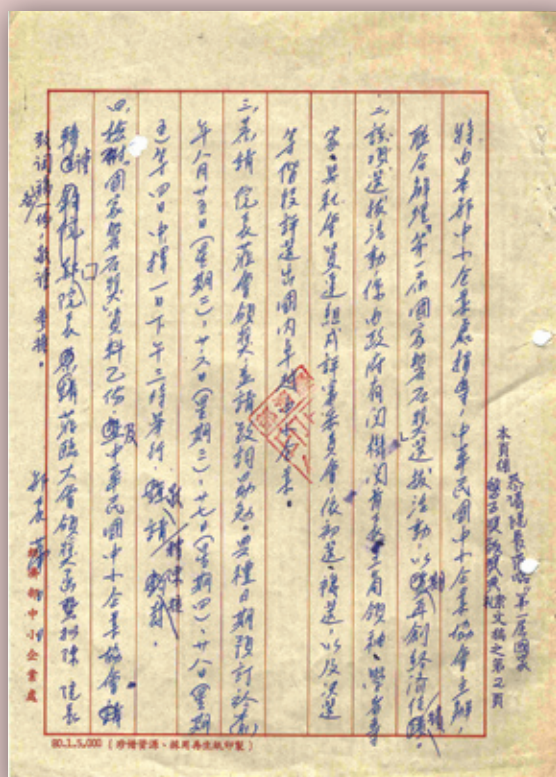 本頁係恭請院長蒞臨「第一屆國家
磐石獎頒獎典禮」案文稿之第2頁
特由本部中小企業處指導,中華民國中小企業協會主辦,
聯合辦理「第一屆國家磐石獎選拔活動」,以期再創經濟佳績。
二、該項選拔活動,係由政府有關機關首長、工商領袖、學者專
家、與執會責達組成評審委員會,依初選、複選,以及決選
等階段評選出國內年度中小企業。
三、恭請 院長蒞會頒獎,並請致詞勗勉。典禮日期預訂於本
年八月廿五日(星期二)、廿六日(星期三)、廿七日(星期四)、廿八日(星期
五)等四日中擇一日下午三時舉行,敬請
四、檢附國家磐石獎資料乙份,及中華民國中小企業協會
請 院長 蒞臨大會頒獎函暨擬陳 院長
致詞稿一份,敬請 參擇。
經濟部中小企業處
80.1.5,000(珍惜資源、採用再生紙印製)